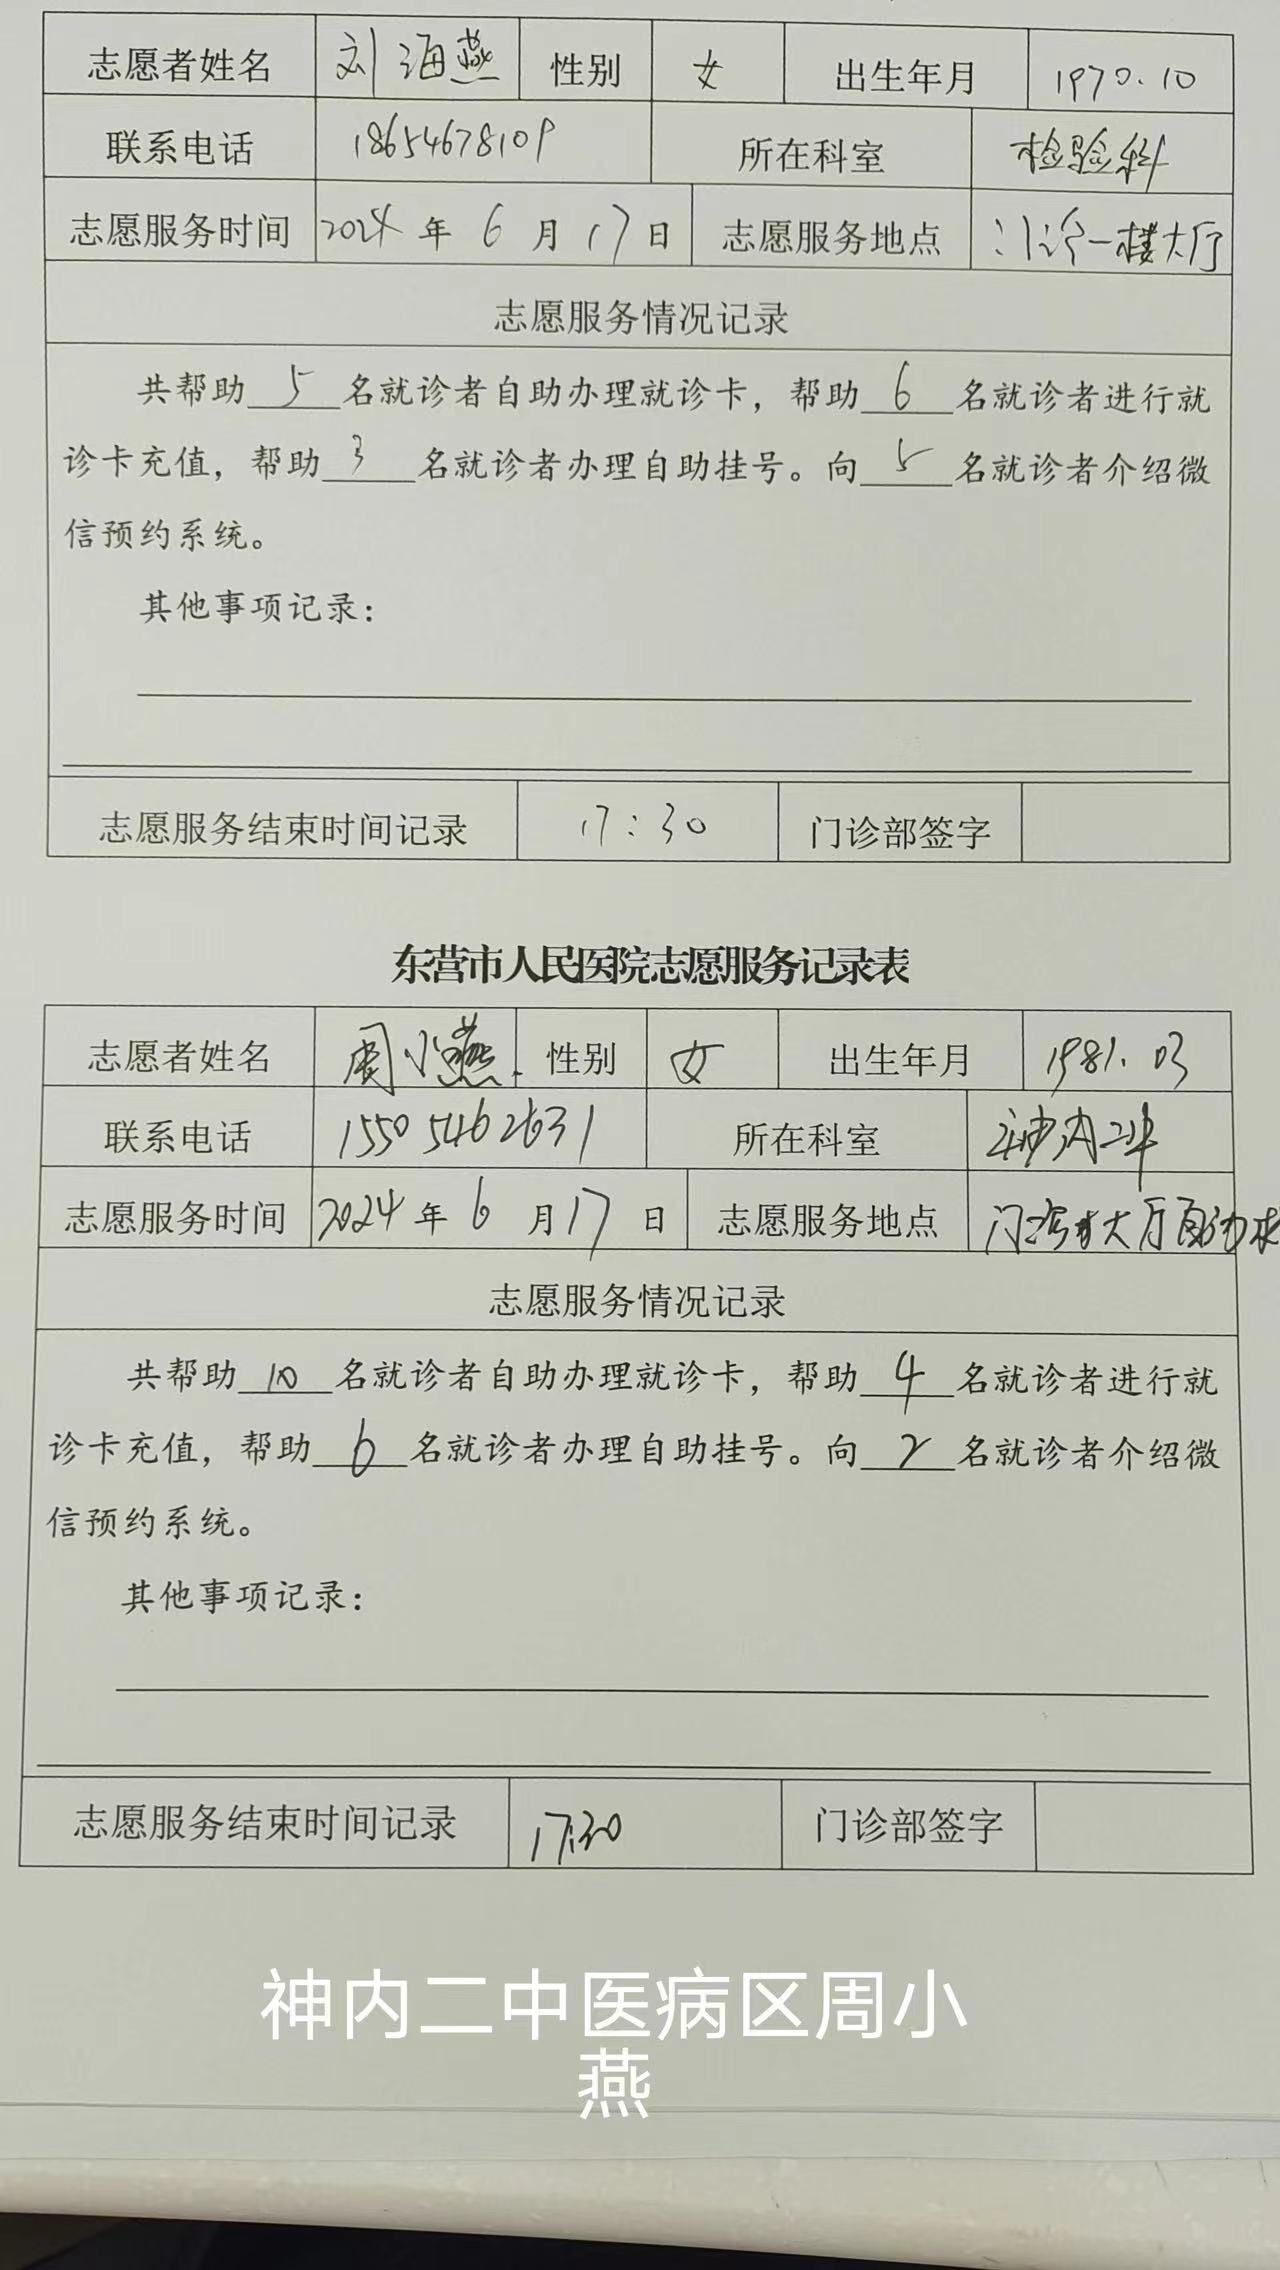 志愿者姓名 刘海燕 性别 女 出生年月 1970.10
联系电话 18654678109 所在科室 检验科
志愿服务时间 2024年6月17日 志愿服务地点 门诊一楼大厅
志愿服务情况记录
共帮助5名就诊者自助办理就诊卡，帮助6名就诊者进行就
诊卡充值，帮助3名就诊者办理自助挂号。向5名就诊者介绍微
信预约系统。
其他事项记录：
志愿服务结束时间记录 17:30 门诊部签字
东营市人民医院志愿服务记录表
志愿者姓名 周小燕 性别 女 出生年月 1981.03
联系电话 15505462631 所在科室 神内二中
志愿服务时间 2024年6月17日 志愿服务地点 门诊大厅自动
志愿服务情况记录
共帮助10名就诊者自助办理就诊卡，帮助4名就诊者进行就
诊卡充值，帮助6名就诊者办理自助挂号。向2名就诊者介绍微
信预约系统。
其他事项记录：
志愿服务结束时间记录 17:30 门诊部签字
神内二中医病区周小
燕